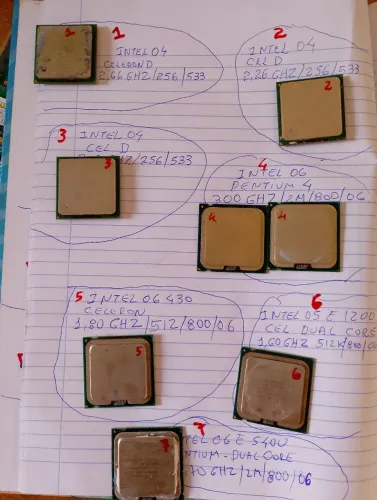 1
1
INTEL 04
CELEROND
2,66 GHZ/256/533
2
INTEL 04
CEL D
2,26 GHZ/256/533
2
3
INTEL 04
3
CEL D
GHZ/256/533
4
INTEL 06
PENTIUM 4
300 GHZ/2M/800/06
4
4
5
INTEL 06 430
CELERON
1,80 GHZ/512/800/06
5
6
INTEL 05 E 1200
CEL DUAL CORE
1,60 GHZ 512K/800/06
6
7
TEL 06 E 5400
NTIUM-DUAL CORE
70 GHZ/2M/800/06
7